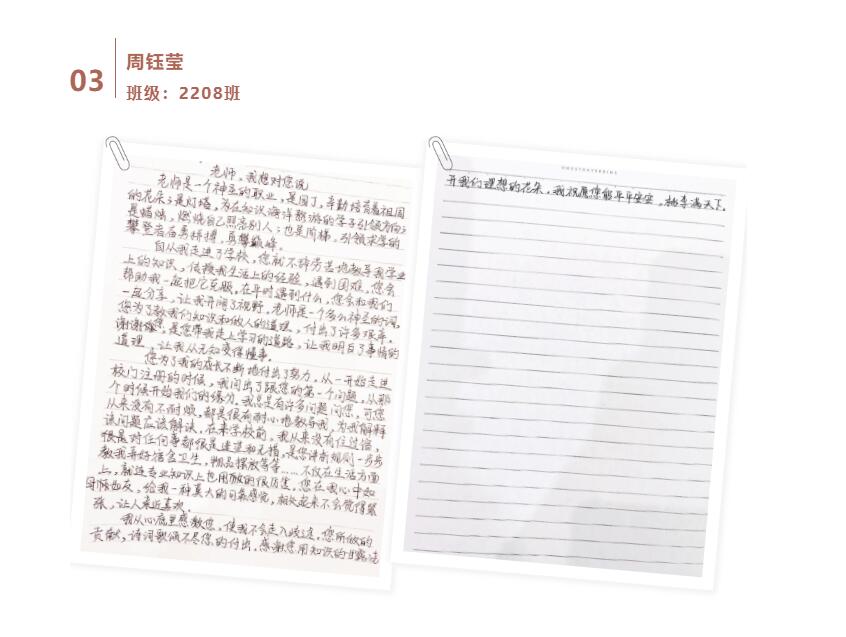 03
周钰莹
班级：2208班
老师，我想对您说
老师是一个神圣的职业，是园丁，辛勤培育着祖国
的花朵；是灯塔，为在知识海洋翱游的学子引领方向；
是蜡烛，燃烧自己照亮别人；也是阶梯，引领求学的
攀登者奋勇拼搏，勇攀巅峰。
自从我走进了学校，您就不辞劳苦地教导我学业
上的知识，传授我生活上的经验，遇到困难，您会
帮助我一起把它克服，在平时遇到什么，您会和我们
一起分享，让我开阔了视野，老师是一个多么神圣的词，
您为了教我们知识和做人的道理，付出了许多艰辛。
谢谢您，是您带我走上学习的道路，让我明白了事情的
道理，让我从无知变得懂事。
您为了我的成长不断地付出了努力，从一开始走进
校门注册的时候，我问出了跟您的第一个问题，从那
个时候开始我们的缘分，我总是有许多问题问您，可您
从来没有不耐烦，都是很有耐心地教导我，为我解释
该问题应该解决，在来学校前，我从来没有住过宿，
很是对任何事都很是迷茫和无措，是您讲新规则一步步
教我弄好宿舍卫生，物品摆放等等……不仅在生活方面
上，就连专业知识上也用做的很厉害，您在我心中如
母
张，让人亲近喜欢。
我从心底里感谢您，使我不会走入歧途，您所做的
贡献，诗词歌颂不尽您的付出，感谢您用知识的甘露浇
开我们理想的花朵，我祝愿您能平平安安，桃李满天下。